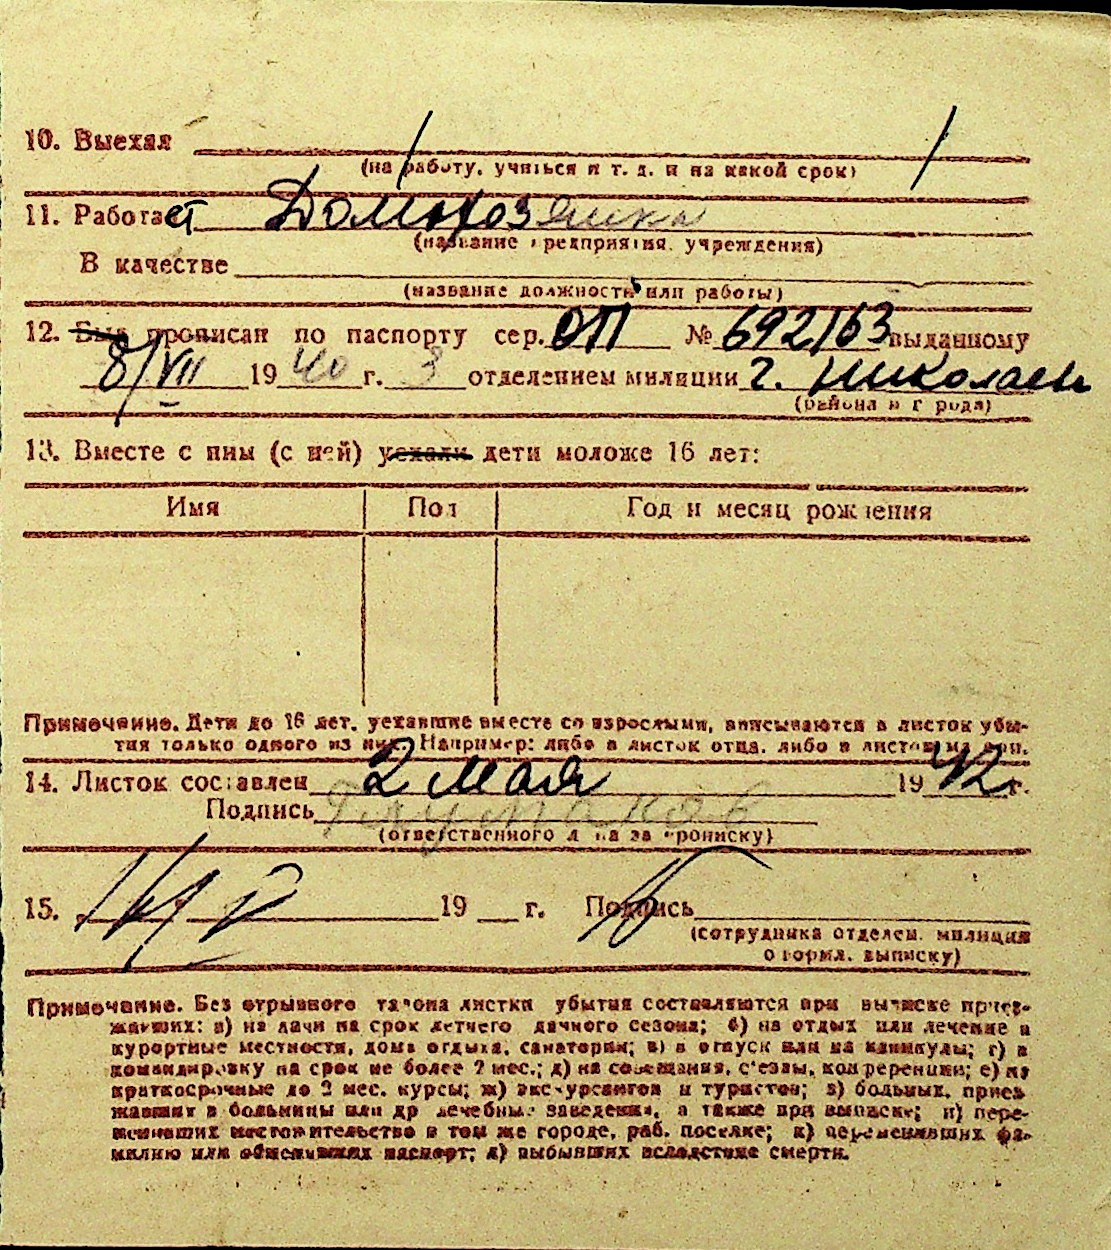 10. Выехал
(на работу, учиться и т. д. и на какой срок)
11. Работает Домохозяйка
(название предприятия, учреждения)
В качестве
(название должности или работы)
12. Был прописан по паспорту сер. ОП № 692163 выданному
8/VII 1940 г. 3 отделением милиции г. Николаев
(района и города)
13. Вместе с ним (с ней) уехали дети моложе 16 лет:
Имя Пол Год и месяц рождения
Примечание. Дети до 16 лет, уехавшие вместе со взрослыми, вписываются в листок убы-
тия только одного из них. Например: либо в листок отца, либо в листок матери.
14. Листок составлен 2 мая 1942 г.
Подпись
(ответственного лица за прописку)
15. 19 г. Подпись
(сотрудника отделен. милиции
оформл. выписку)
Примечание. Без отрывного талона листки убытия составляются при выписке приез-
жавших: а) на дачи на срок летнего дачного сезона; б) на отдых или лечение в
курортные местности, дома отдыха, санатории; в) в отпуск или на каникулы; г) в
командировку на срок не более 2 мес.; д) на совещания, съезды, конференции; е) на
краткосрочные до 2 мес. курсы; ж) экскурсантов и туристов; з) больных, приез
жавших в больницы или др лечебные заведения, а также при выписке; и) пере-
менивших местожительство в том же городе, раб. поселке; к) переменивших фа-
милию или обменявших паспорт; л) выбывших вследствие смерти.